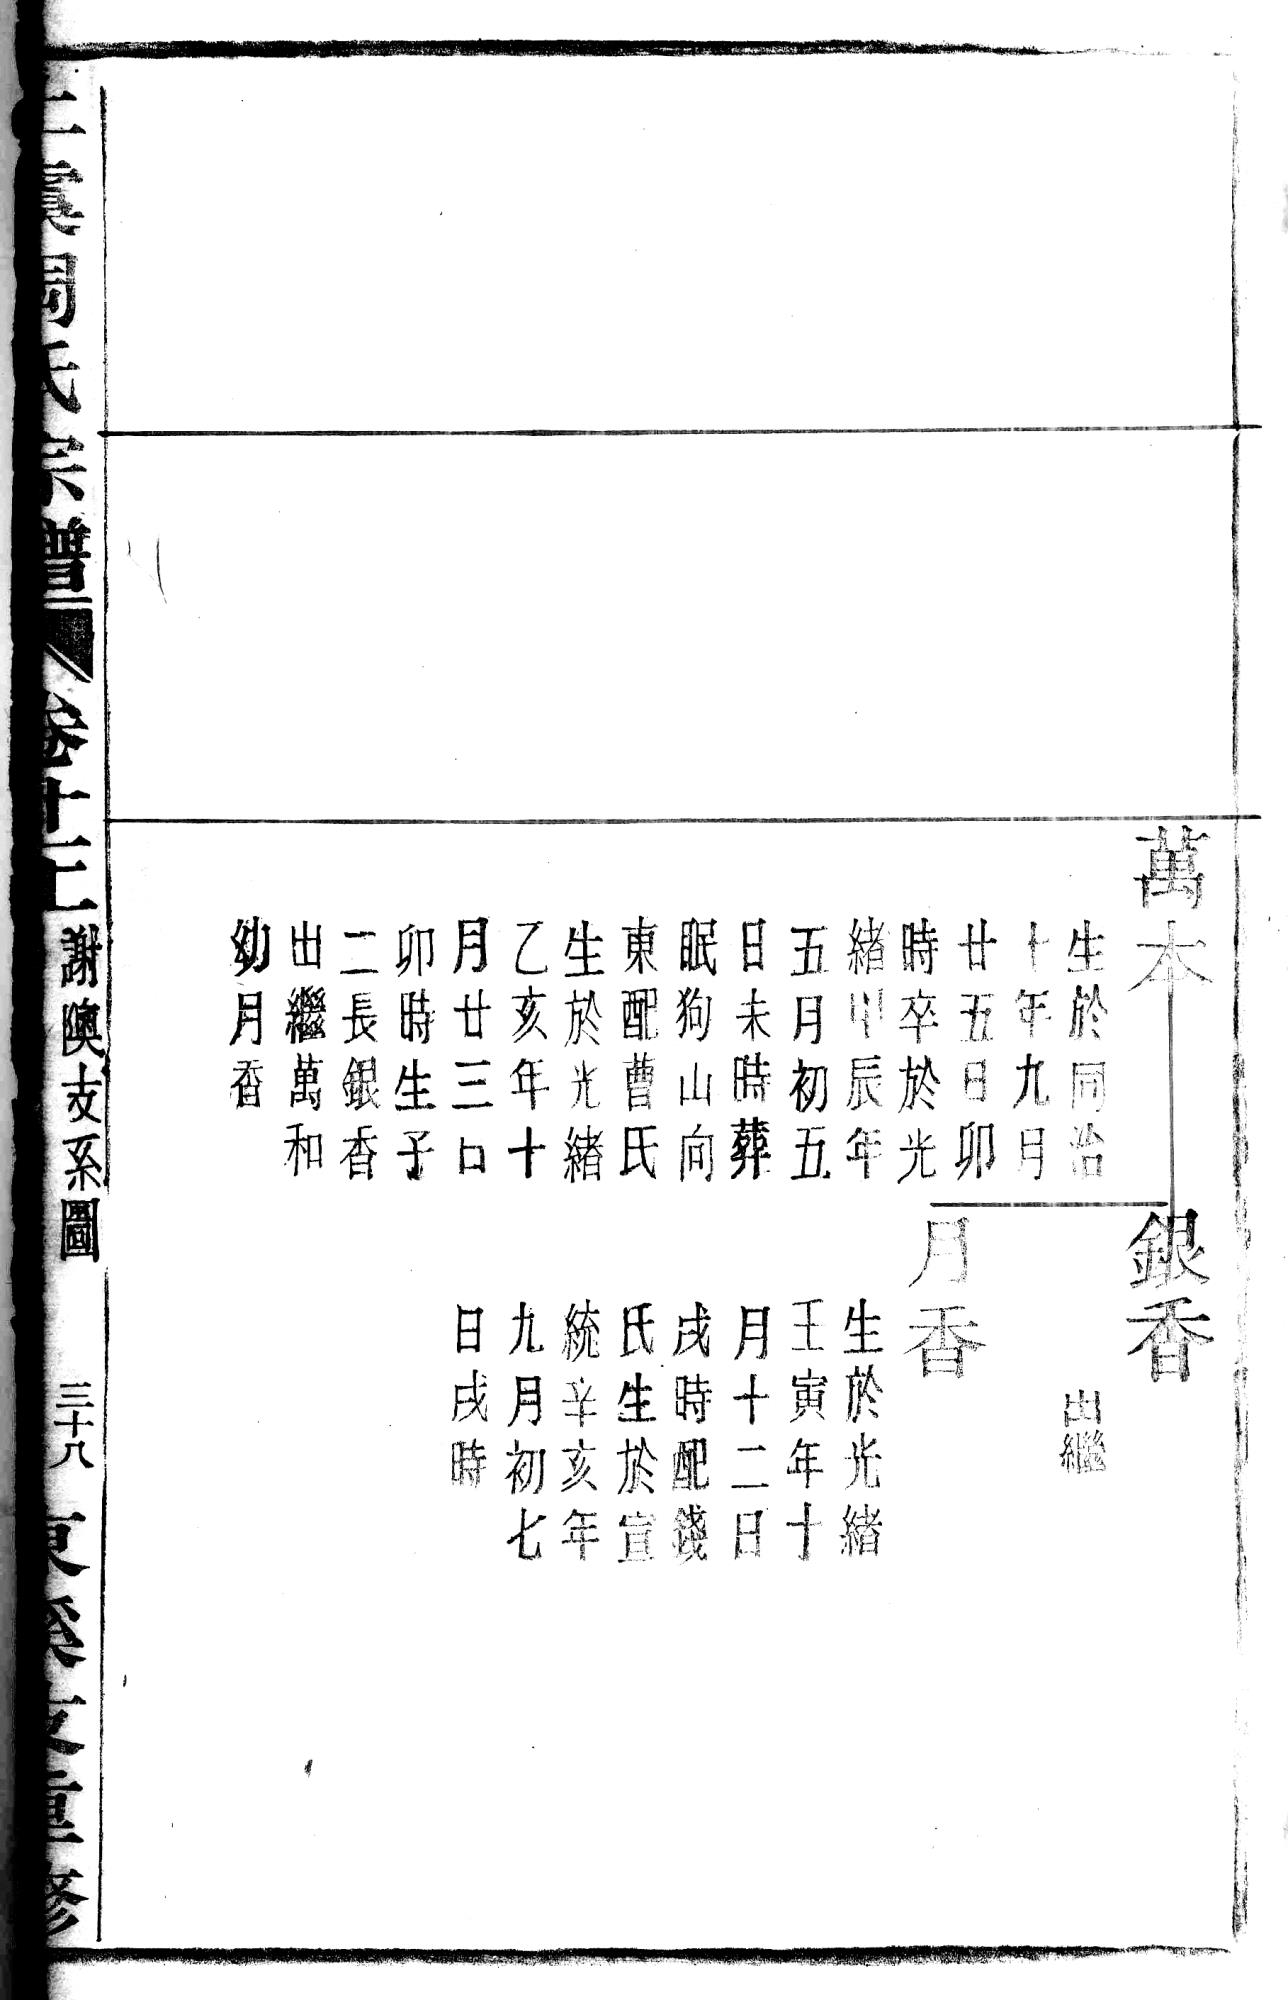 萬本
生於同治
十年九月
廿五日卯
時卒於光
緒甲辰年
五月初五
日未時葬
眠狗山向
東配曹氏
生於光緒
乙亥年十
月廿三日
卯時生子
二長銀香
出繼萬和
幼月香
銀香
出繼
月香
生於光緒
壬寅年十
月十二日
戌時配錢
氏生於宣
統辛亥年
九月初七
日戌時
上虞周氏宗譜
卷十二
謝隩支系圖
三十八
重修